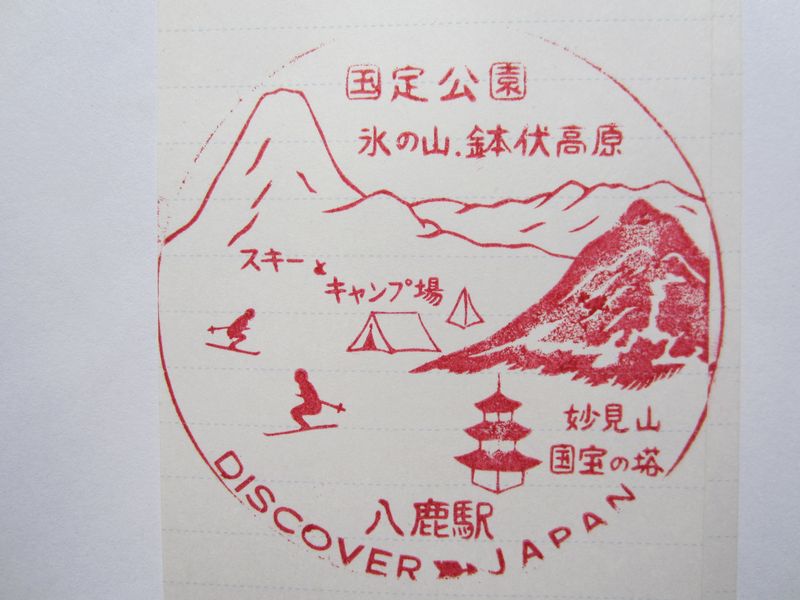 国定公園
氷の山.鉢伏高原
スキーと
キャンプ場
妙見山
国宝の塔
八鹿駅
DISCOVER JAPAN